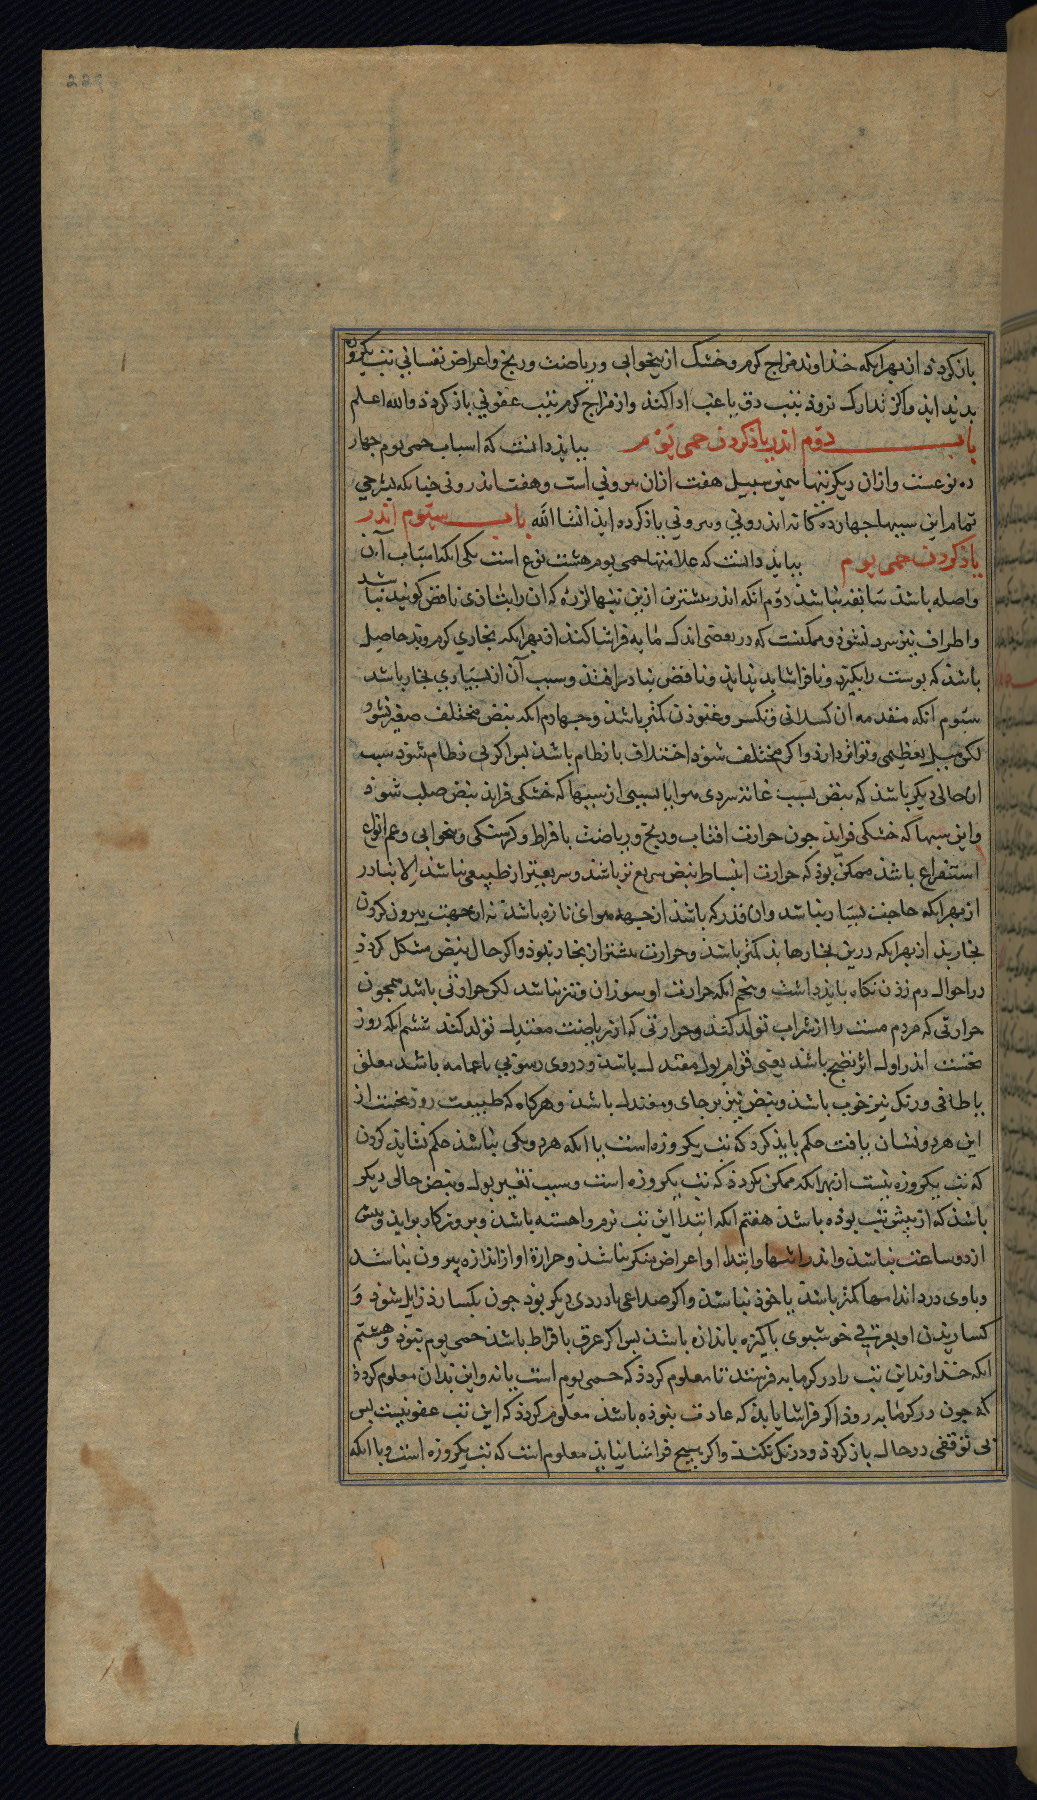 بازکردذ از بهر آنکه خذاوند مزاج کرم و خشک از بیخوابی و ریاضت و رنج و اعراض نفسانی تب یکروزه
بدید آید واکر تدارک نروذ بتب دق یا غب ادا کنذ واز مزاج کرم بتب عفونی بازکردذ والله اعلم
باب دوم اندر یاذکردن حمی یوم بباید دانست که اسباب حمی یوم جهار
ده نوعست وازان دیکر تبها همبرین سبیل هفت ازان بیرونی است وهفت اندرونی جنانکه بشرحی
تمام این سببها جهارده کانه اندرونی وبیرونی یاذکرده ایذ انشا الله باب سیوم اندر
یاذکردن حمی یوم بباید دانست که علامتها حمی یوم هشت نوع است یکی آنکه اسباب آن
واصله باشذ سابقه نباشذ دوم آنکه اندر بیشترین ازین تبها لرزه که ان را بتازی نافض کویند نباشد
واطراف نیز سرد نشوذ وممکنست که در بعضی اندک مایه فراشا کنذ از بهر آنکه بخاری کرم وتیز حاصل
باشذ که بوست را بکزد وبا فراشا بدید آید ونافض بنادر افتذ وسبب آن از بسیاری بخار باشد
سیوم آنکه مقدمه ان کسلانی وتکسر وغنوذن کمتر باشذ وجهارم آنکه نبض مختلف صغیر نشوذ
لکن میل بعظیمی وتواتر دارذ واکر مختلف شوذ اختلاف با نظام باشذ بس اکر بی نظام شوذ سبب
ان حالی دیکر باشذ که نبض بسبب غایت سردی هوا یا بسببی از سببها که خشکی فزاید نبض صلب شوذ
واین سببها که خشکی فزاید جون حرارت افتاب ورنج وریاضت با فراط وکرسنکی وبیخوابی وغم وانواع
استفراغ باشذ ممکن بوذ که حرارت انبساط نبض سریع تر باشذ وسریعتر از طبیعی نباشذ الا بنادر
از بهر آنکه حاجت بسیار نباشد وان قذر که باشذ از جهة هوای تازه باشذ نه از جهت بیرون کردن
بخار بذ از بهر آنکه درین بخارها بذ کمتر باشذ وحرارت بیشتر از بخار بوذ واکر حال نبض مشکل کردذ
در احوال دم زذن نکاه بایذ داشت وبنجم آنکه حرارت او سوزان وتیز نباشد لکن حرارتی باشد همجون
حرارتی که مردم مست را از شراب تولد کنذ وحرارتی که از ریاضت معتدل تولد کند ششم آنکه روز
نخست اندر اول اثر نضج باشذ یعنی قوام بول معتدل باشذ ودروی رسوبی یا غمامه باشد معلق
یا طافی ورنک نیز خوب باشذ ونبض نیز برجای ومعتدل باشذ وهرکاه که طبیب روز نخست از
این هر دو نشان یافت حکم بایذ کرد که تب یکروزه است با آنکه هر دو یکی نباشذ حکم نشاید کردن
که تب یکروزه نیست از بهر آنکه ممکن کردذ که تب یکروزه است وسبب تغیر بول ونبض حالی دیکر
باشذ که از پیش تب بوده باشذ هفتم آنکه ابتدا این تب نرم واهسته باشذ وبروزکار براید وبیش
از دو ساعت نباشذ واندر انتها وابتدا او اعراض منکر نباشذ وحرارة او از اندازه بیرون نباشد
وباوی درد اندامها کمتر باشذ یا خوذ نباشذ واکر صداعی یا دردی دیکر بوذ جون بکسارذ زایل شوذ و
کساریدن او بعرقی خوشبوی باکیزه باندازه باشذ بس اکر عرق با فراط باشذ حمی یوم نبوذ وهشتم
آنکه خذاوند این تب را در کرمابه فرستند تا معلوم کردذ که حمی یوم است یا نه واین بدان معلوم کردذ
که جون در کرمابه روذ اکر فراشا یابذ که عادت نبوذه باشذ معلوم کردذ که این تب عفونیست بس
بی توقفی در حال بازکردذ ودرنک نکنذ واکر هیج فراشا نیابذ معلوم است که تب یکروزه است وبا آنکه